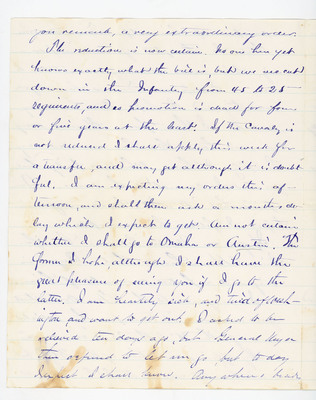 you remark, a very extraordinary order.
The reduction is now certain. No one here yet
knows exactly what the bill is, but we are cut
down in the Infantry from 45 to 25
regiments, and so promotion is dead for four
or five years at the least. If the Cavalry is
not reduced I shall apply this week for
a transfer, and may get it although it is doubt-
ful. I am expecting my orders this af-
ternoon, and shall then ask a month's de-
lay which I expect to get. Am not certain
whether I shall go to Omaha or Austin. The
former I hope, although I shall have the
great pleasure of seeing you if I go to the
latter. I am heartily sick, and tired of Wash-
ington and want to get out. I asked to be
relieved ten days ago, but General
then refused to let me go but to day
I shall know. Any where